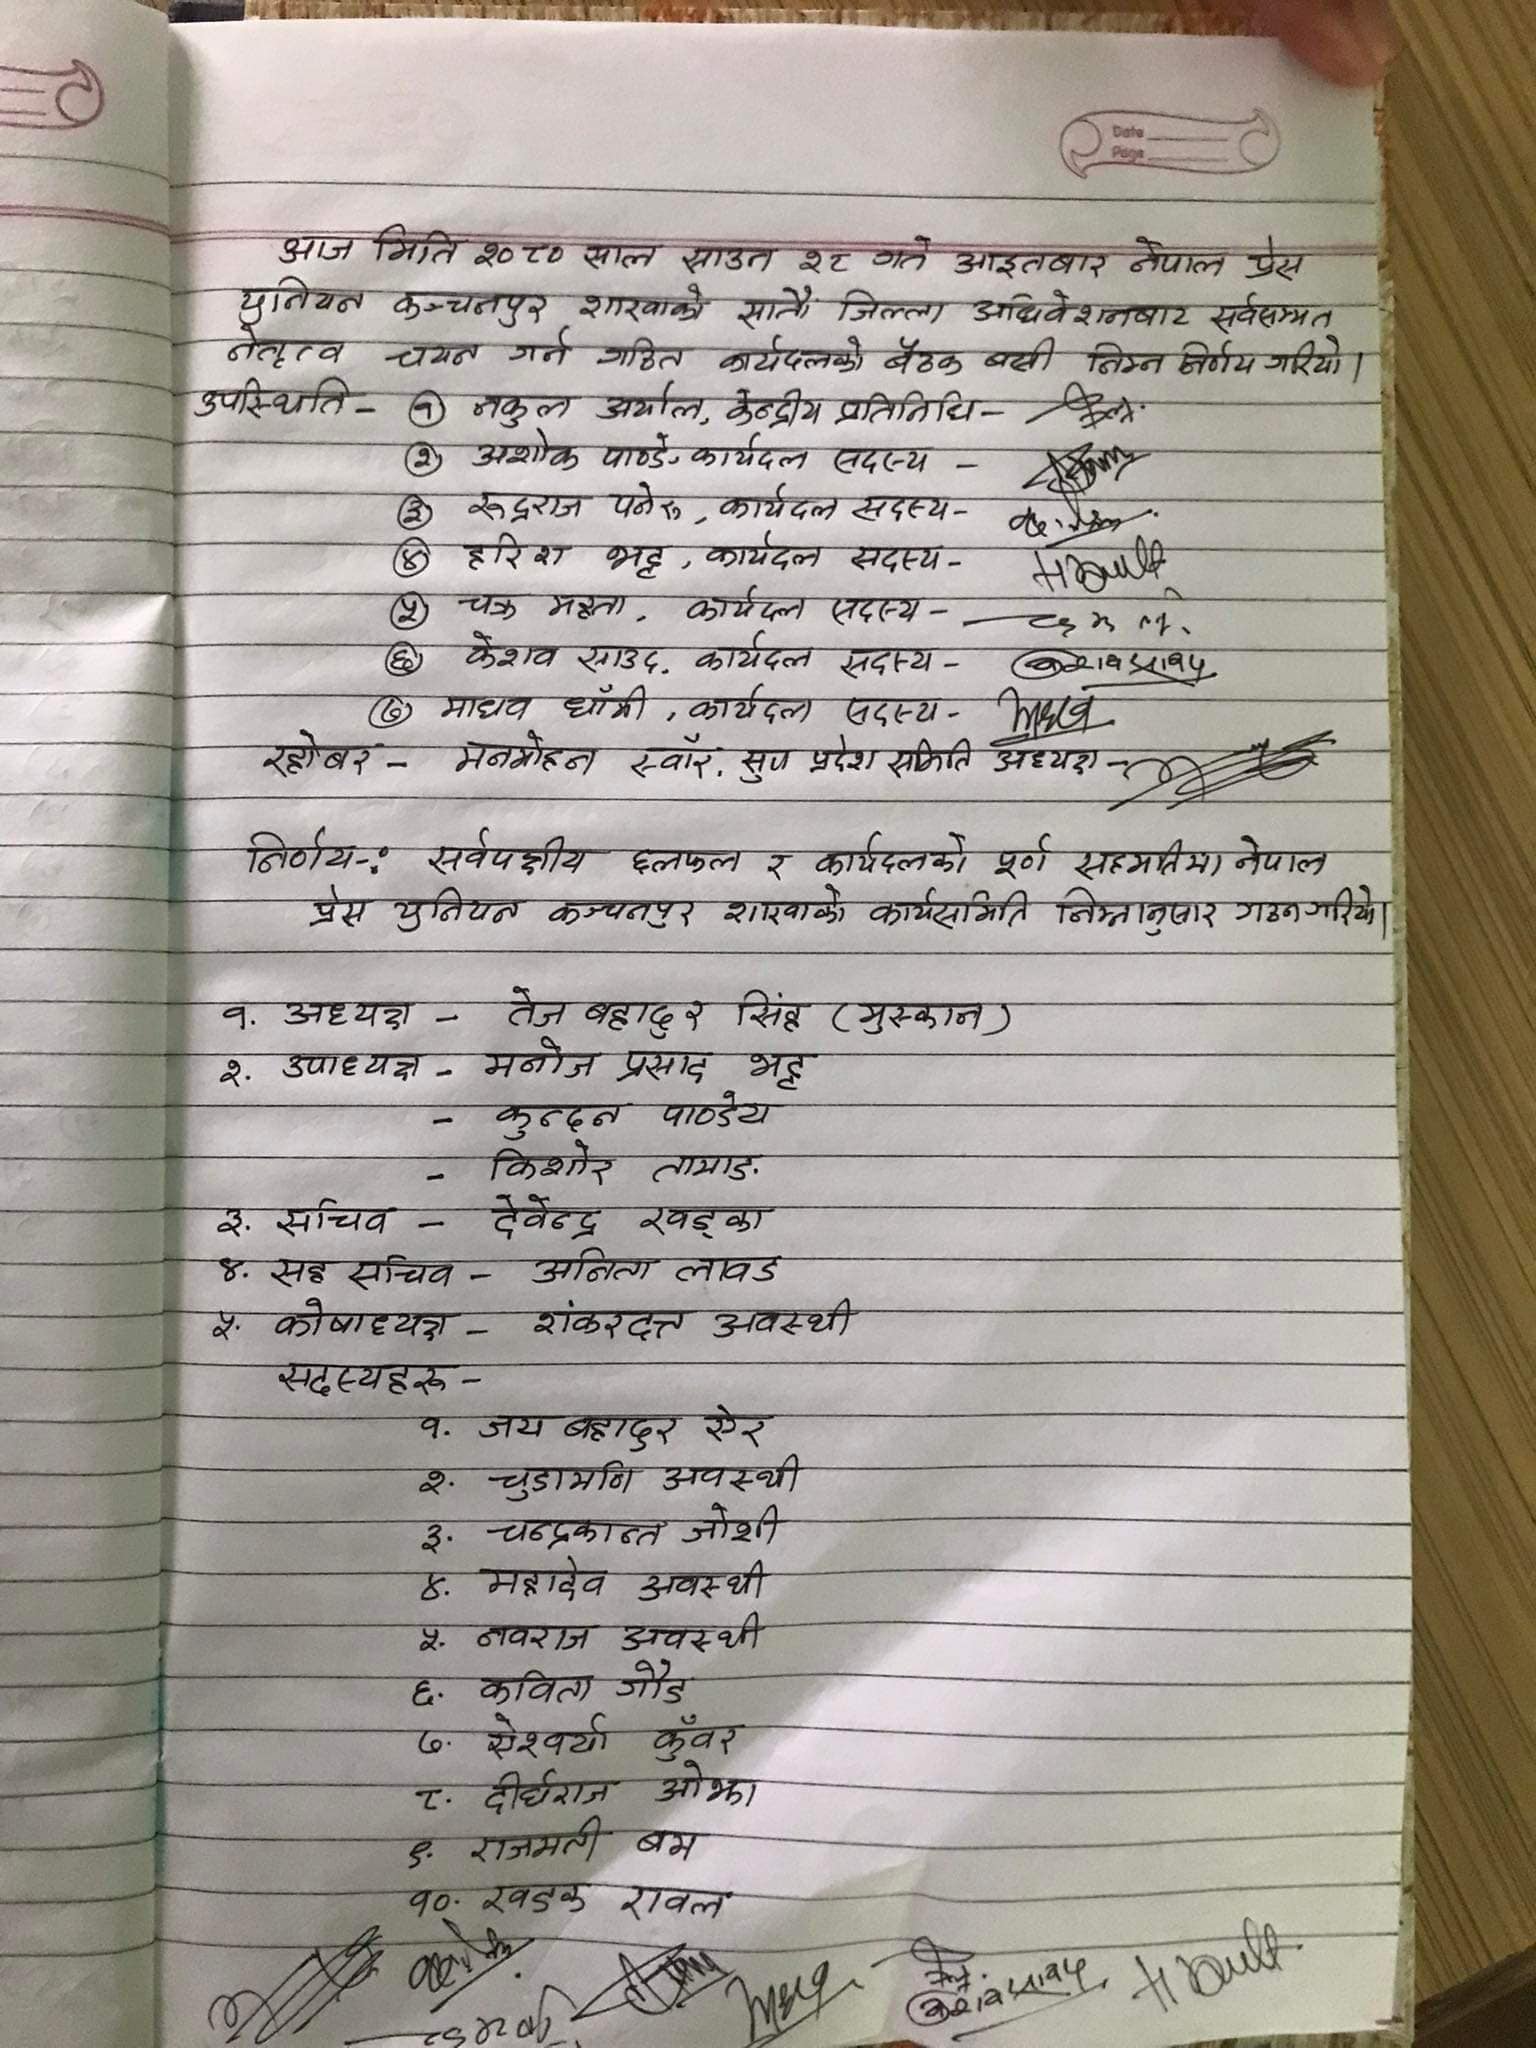 Date
Page
आज मिति २०८० साल साउन २८ गते आइतबार नेपाल प्रेस
युनियन कञ्चनपुर शाखाको सातौं जिल्ला अधिवेशनबाट सर्वसम्मत
नेतृत्व चयन गर्न गठित कार्यदलको बैठक बसी निम्न निर्णय गरियो।
उपस्थिति - १ नकुल अर्याल, केन्द्रीय प्रतिनिधि -
२ अशोक पाण्डे, कार्यदल सदस्य -
३ रूद्रराज पनेरू, कार्यदल सदस्य -
४ हरिश भट्ट, कार्यदल सदस्य -
५ चक्र महता, कार्यदल सदस्य -
६ केशव साउद, कार्यदल सदस्य -
७ माधव धाँमी, कार्यदल सदस्य -
रहोबर - मनमोहन स्वाँर, सुप प्रदेश समिति अध्यक्ष -
निर्णय-: सर्वपक्षीय छलफल र कार्यदलको पूर्ण सहमतिमा नेपाल
प्रेस युनियन कञ्चनपुर शाखाको कार्यसमिति निम्नानुसार गठन गरियो।
१. अध्यक्ष - तेज बहादुर सिंह (मुस्कान)
२. उपाध्यक्ष - मनोज प्रसाद भट्ट
- कुन्दन पाण्डेय
- किशोर तामाङ
३. सचिव - देवेन्द्र खड्का
४. सह सचिव - अनिता लावड
५. कोषाध्यक्ष - शंकरदत्त अवस्थी
सदस्यहरू -
१. जय बहादुर ऐर
२. चुडामनि अवस्थी
३. चन्द्रकान्त जोशी
४. महादेव अवस्थी
५. नवराज अवस्थी
६. कविता गौड
७. ऐश्वर्या कुँवर
८. दीर्घराज ओझा
९. राजमती बम
१०. खडक रावल